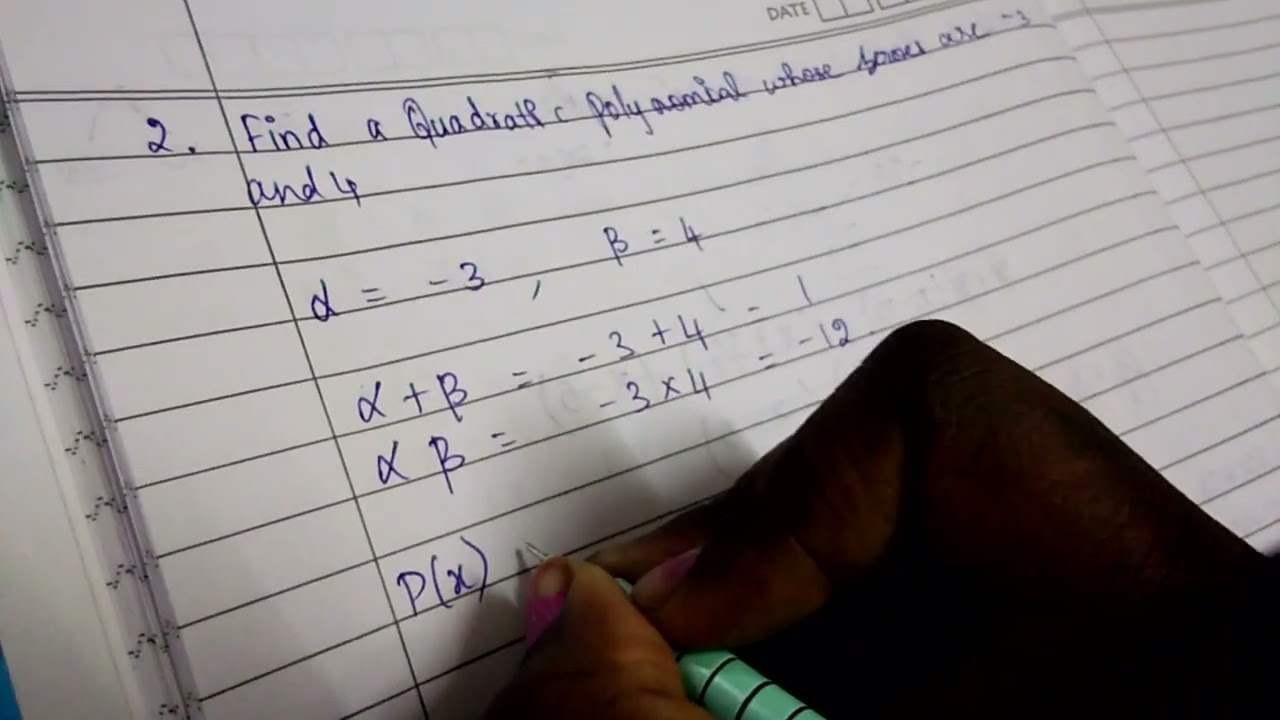 DATE
2. Find a Quadratic polynomial whose zeroes are -3
and 4
α = -3, β = 4
α + β = -3 + 4 = 1
α β = -3 × 4 = -12
P(x)